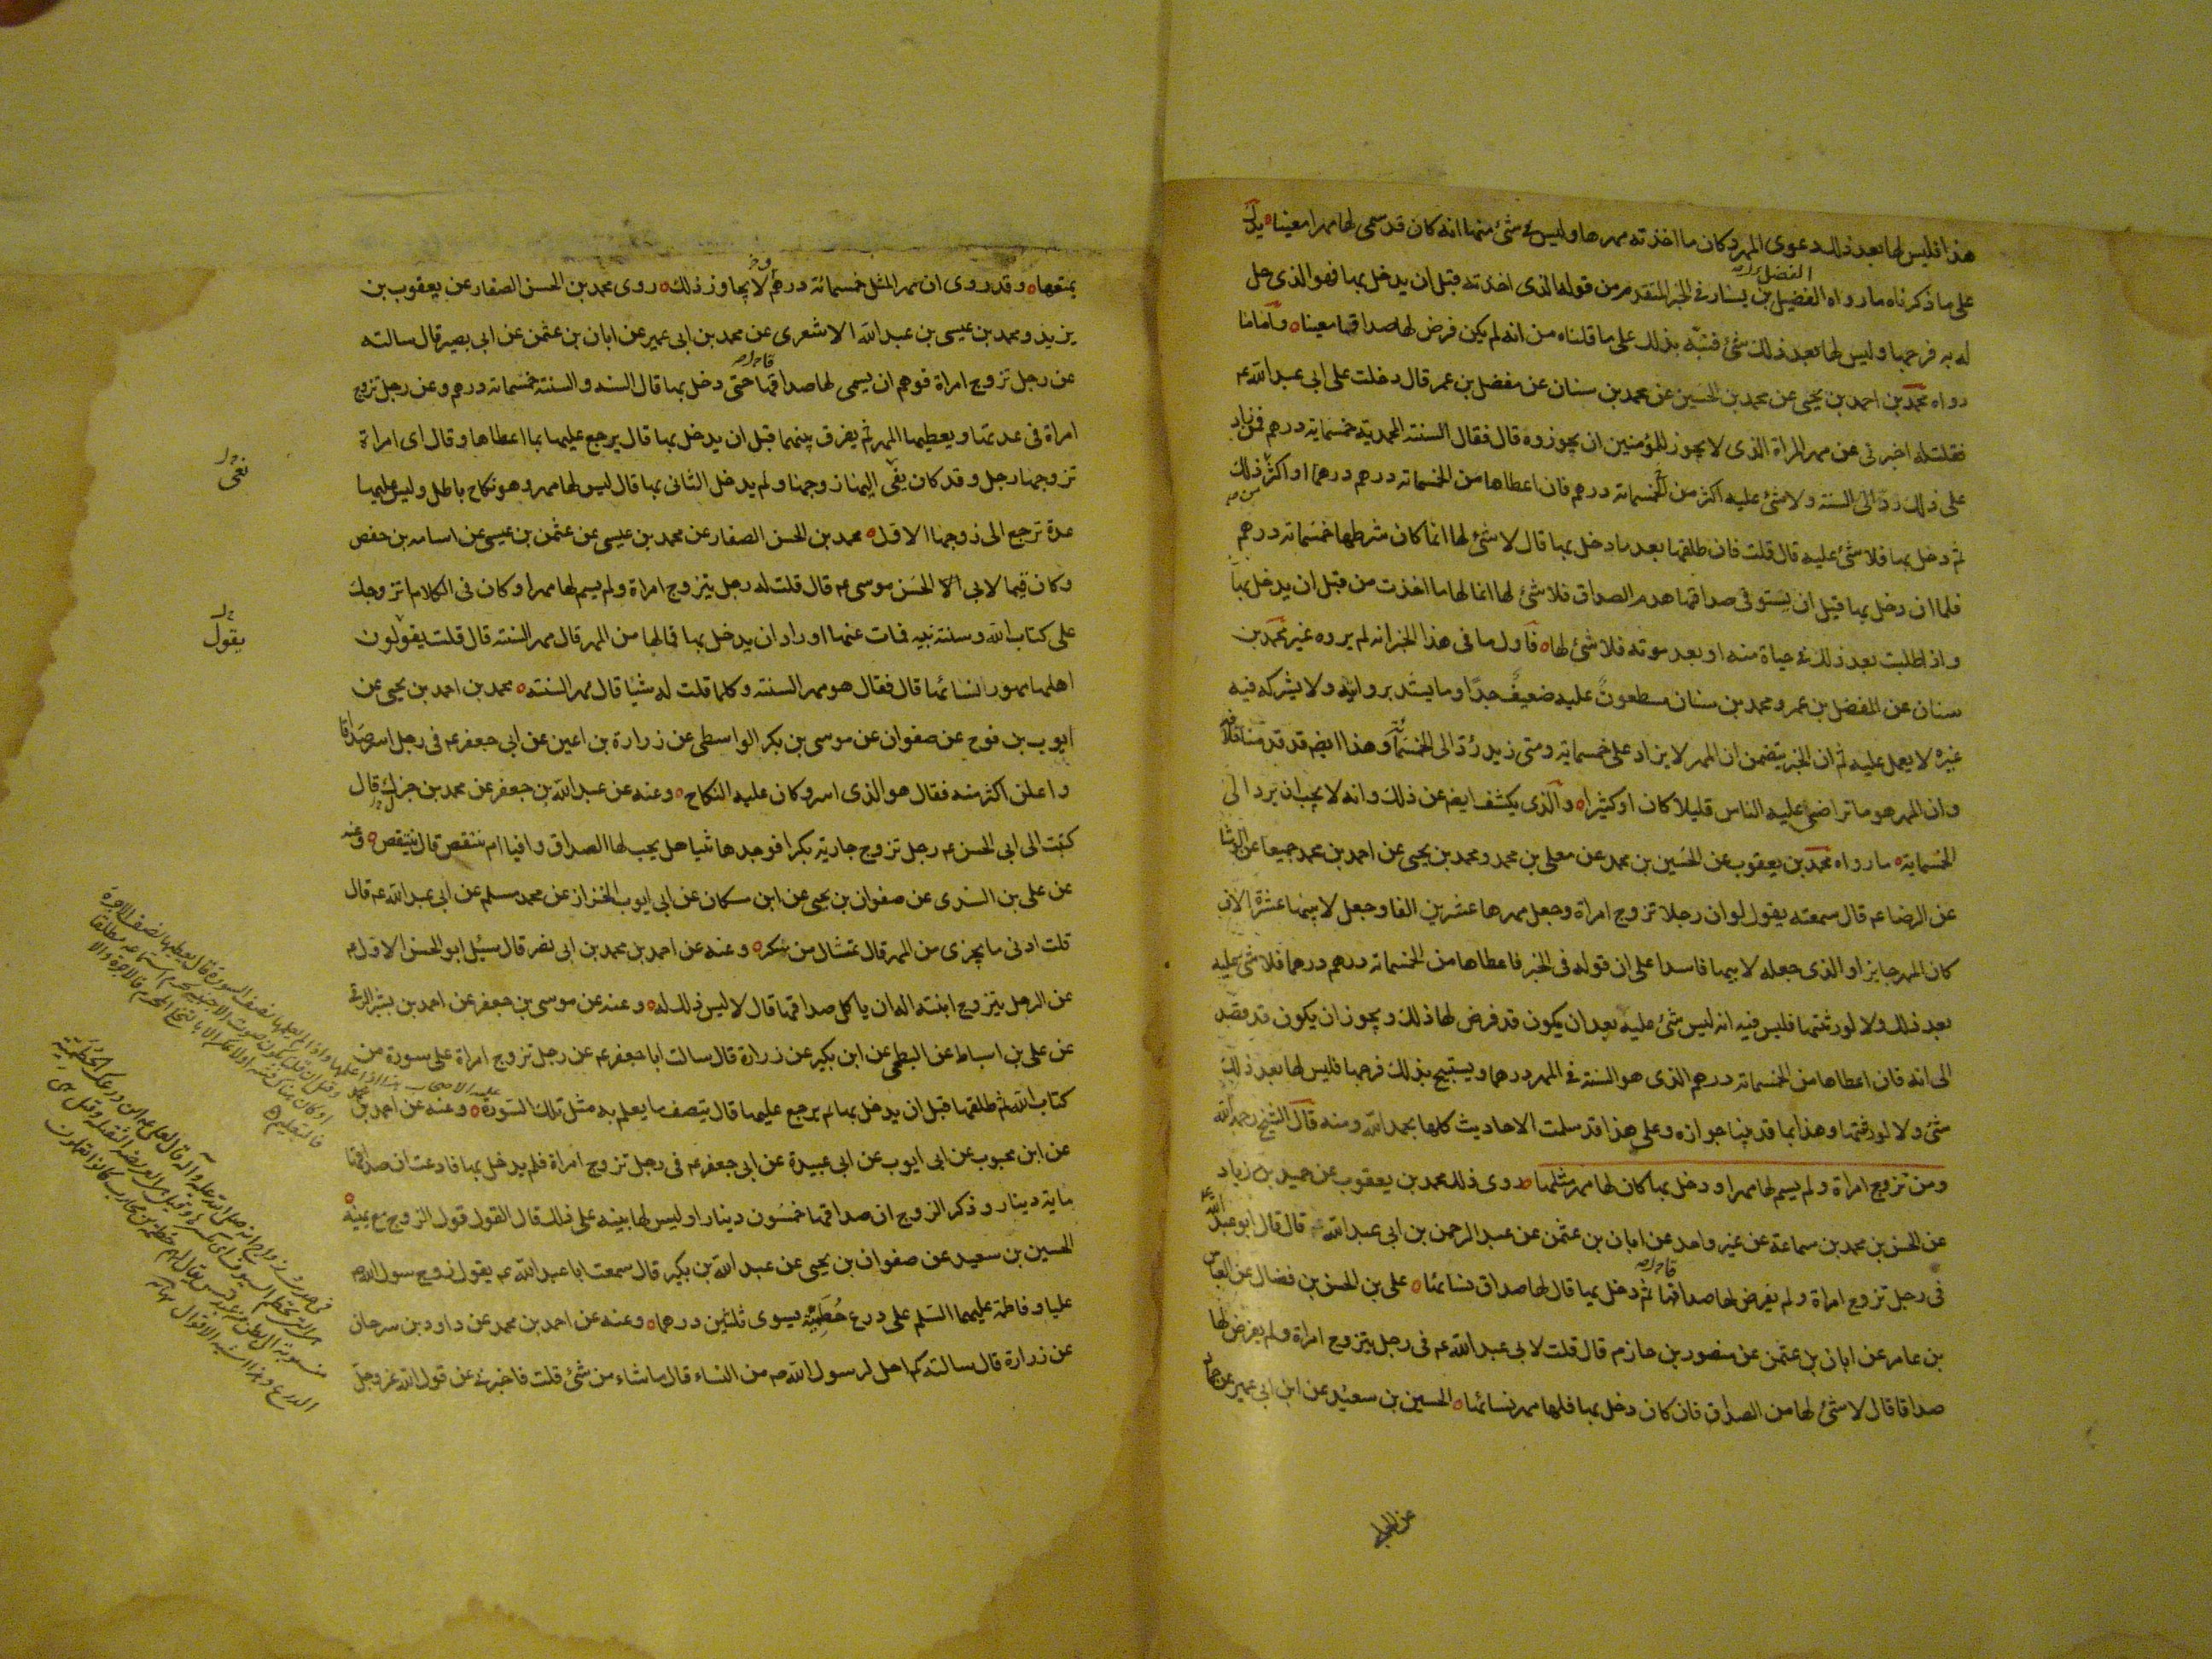 هذا فليس لها بعد ذلك دعوى المهر وكان ما اخذته مهرها وليس فى شئ منها انه كان قد سمى لها مهرا معينا ه يدل
على ما ذكرناه ما رواه الفضيل بن يسار فى الخبر المتقدم من قوله الذى اخذته قبل ان يدخل بها فهو الذى حل
له به فرجها وليس لها بعد ذلك شئ فنبّه بذلك على ما قلناه من انه لم يكن فرض لها صداقها معينا ه وامّا ما
رواه محمد بن احمد بن يحيى عن محمد بن الحسين عن محمد بن سنان عن مفضل بن عمر قال دخلت على ابى عبد الله ع
فقلت له اخبرنى عن مهر المراة الذى لا يجوز للمؤمنين ان يجوزوه قال فقال السنة المحمدية خمسماية درهم فمن زاد
على ذلك ردّ الى السنة ولا شئ عليه اكثر من الخمسماية درهم فان اعطاها من الخمسماية درهم درهما او اكثر ذلك
ثم دخل بها فلا شئ عليه قال قلت فان طلقها بعد ما دخل بها قال لا شئ لها انما كان شرطها خمسماية درهم
فلما ان دخل بها قبل ان يستوفى صداقها هدم الصداق فلا شئ لها انما لها ما اخذت من قبل ان يدخل بها
واذا طلبت بعد ذلك فى حياة منه او بعد موته فلا شئ لها ه فاول ما فى هذا الخبر انه لم يروه غير محمد بن
سنان عن المفضل بن عمر ومحمد بن سنان مطعون عليه ضعيف جدّا وما يستبد بروايته ولا يشركه فيه
غيره لا يعمل عليه ثم ان الخبر يتضمن ان المهر لا يزاد على خمسماية ومتى زيد ردّ الى الخمسماية وهذا ايضم قد قدمنا خلافه
وان المهر هو ما تراضى عليه الناس قليلا كان او كثيرا ه والذى يكشف ايضم عن ذلك وانه لا يجب ان يرد الى
الخمسماية ه ما رواه محمد بن يعقوب عن الحسين بن محمد عن معلى بن محمد ومحمد بن يحيى عن احمد بن محمد جميعا عن الوشا
عن الرضا ع قال سمعته يقول لو ان رجلا تزوج امراة وجعل مهرها عشرين الفا وجعل لابيها عشرة الاف
كان المهر جايزا والذى جعله لابيها فاسدا على ان قوله فى الخبر فاعطاها من الخمسماية درهم درهما فلا شئ عليه
بعد ذلك ولا لورثتها فليس فيه انه ليس شئ عليه بعد ان يكون قد فرض لها ذلك ويجوز ان يكون قد قصد
الى انه فان اعطاها من الخمسماية درهم الذى هو السنة فى المهر درهما ويستبيح بذلك فرجها فليس لها بعد ذلك
شئ ولا لورثتها وهذا بما قد بينا جوازه وعلى هذا قد سلمت الاحاديث كلها بحمد الله ومنه قال الشيخ رحمه الله
ومن تزوج امراة ولم يسم لها مهرا ودخل بها كان لها مهر مثلها ه روى ذلك محمد بن يعقوب عن حميد بن زياد
عن الحسن بن محمد بن سماعة عن غير واحد عن ابان بن عثمن عن عبد الرحمن بن ابى عبد الله قال قال ابو عبد الله ع
فى رجل تزوج امراة ولم يفرض لها صداقها ثم دخل بها قال لها صداق نسائها ه على بن الحسن بن فضال عن العباس
بن عامر عن ابان بن عثمن عن منصور بن حازم قال قلت لابى عبد الله ع فى رجل يتزوج امراة ولم يفرض لها
صداقا قال لا شئ لها من الصداق فان كان دخل بها فلها مهر نسائها ه الحسين بن سعيد عن ابن ابى عمير عن حماد
عن الحلبى
يمتعها ه وقد روى ان مهر المثل خمسمائة درهم لا يجاوز ذلك ه روى محمد بن الحسن الصفار عن يعقوب بن
يزيد ومحمد بن عيسى بن عبد الله الاشعرى عن محمد بن ابى عمير عن ابان بن عثمن عن ابى بصير قال سالته
عن رجل تزوج امراة فوهم ان يسمى لها صداقها حتى دخل بها قال السنة والسنة خمسماية درهم وعن رجل تزوج
امراة فى عدتها ويعطيها المهر ثم يفرق بينهما قبل ان يدخل بها قال يرجع عليها بما اعطاها وقال اى امراة
تزوجها رجل وقد كان نعى اليها زوجها ولم يدخل الثانى بها قال ليس لها مهر وهو نكاح باطل وليس عليها
عدة ترجع الى زوجها الاول ه محمد بن الحسن الصفار عن محمد بن عيسى عن عثمن بن عيسى عن اسامه بن حفص
وكان قيما لابى الحسن موسى ع قال قلت له رجل يتزوج امراة ولم يسم لها مهرا وكان فى الكلام اتزوجك
على كتاب الله وسنة نبيه فمات عنها او اراد ان يدخل بها فما لها من المهر قال مهر السنة قال قلت يقولون
اهلها مهور نسائها قال فقال هو مهر السنة وكلما قلت له شيئا قال مهر السنة ه محمد بن احمد بن يحيى عن
ايوب بن نوح عن صفوان عن موسى بن بكر الواسطى عن زرارة بن اعين عن ابى جعفر ع فى رجل اسر صداقا
واعلن اكثر منه فقال هو الذى اسر وكان عليه النكاح ه وعنه عن عبد الله بن جعفر عن محمد بن جزك قال
كتبت الى ابى الحسن ع رجل تزوج جارية بكرا فوجدها ثيبا هل يجب لها الصداق وافيا ام ينتقص قال ينتقص ه وعنه
عن على بن السندى عن صفوان بن يحيى عن ابن مسكان عن ابى ايوب الخزاز عن محمد مسلم عن ابى عبد الله ع قال
قلت ادنى ما يجزى من المهر قال تمثال من سكر ه وعنه عن احمد بن محمد بن ابى نصر قال سئل ابو الحسن الاول ع
عن الرجل يتزوج ابنته اله ان ياكل صداقها قال لا ليس ذلك له ه وعنه عن موسى بن جعفر عن احمد بن بشر الرقى
عن على بن اسباط عن البطحى عن ابن بكير عن زرارة قال سالت ابا جعفر ع عن رجل تزوج امراة على سورة من
كتاب الله ثم طلقها قبل ان يدخل بها بم يرجع عليها قال بنصف ما يعلم به مثل تلك السورة ه وعنه عن احمد بن محمد
عن ابن محبوب عن ابى ايوب عن ابى عبيدة عن ابى جعفر ع فى رجل تزوج امراة فلم يدخل بها فادعت ان صداقها
ماية دينار وذكر الزوج ان صداقها خمسون دينارا وليس لها بينه على ذلك قال القول قول الزوج مع يمينه ه
الحسين بن سعيد عن صفوان بن يحيى عن عبد الله بن بكير قال سمعت ابا عبد الله ع يقول زوج رسول الله ص
عليا وفاطمة عليهما السلم على درع حُطَمِيّة يسوى ثلثين درهما ه وعنه عن احمد بن محمد عن داود بن سرحان
عن زرارة قال سالته كم احل لرسول الله ص من النساء قال ما شاء من شئ قلت فاخبرنى عن قول الله عز وجل
نعى
يقول